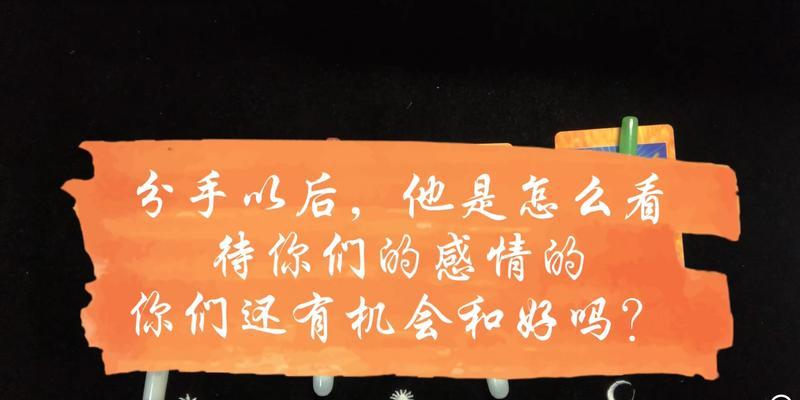 分手以后，他是怎么看
待你们的感情的
你们还有机会和好吗？